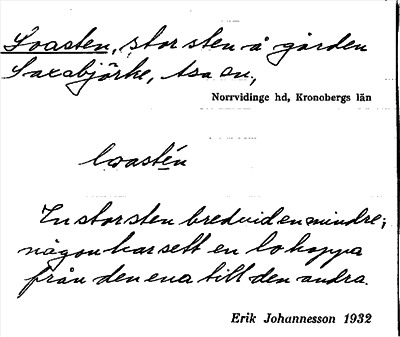 Loasten, stor sten å gården
Saxabjörke, tsa en,
Norrvidinge hd, Kronobergs län
loastén
En stor sten bredvid en mindre;
någon har sett en lo hoppa
från den ena till den andra.
Erik Johannesson 1932